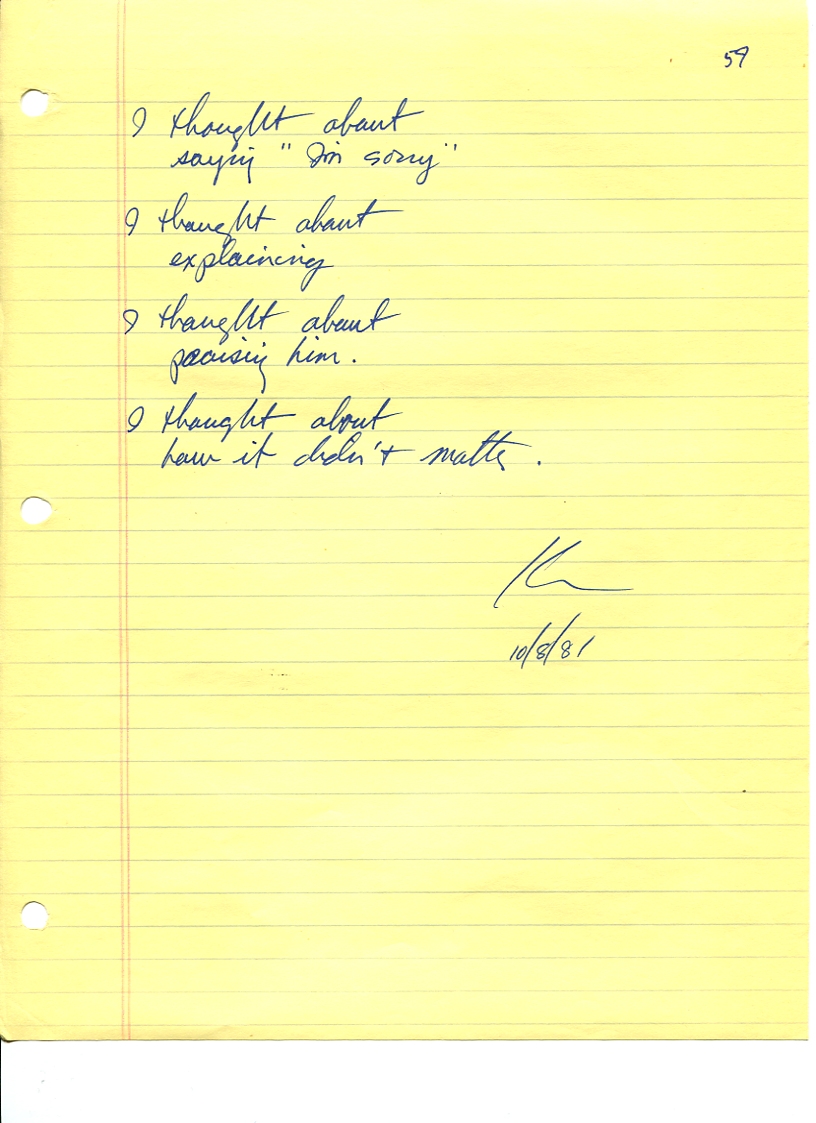 59
I thought about
saying "I'm sorry"
I thought about
explaining
I thought about
praising him.
I thought about
how it didn't matter.
10/8/81